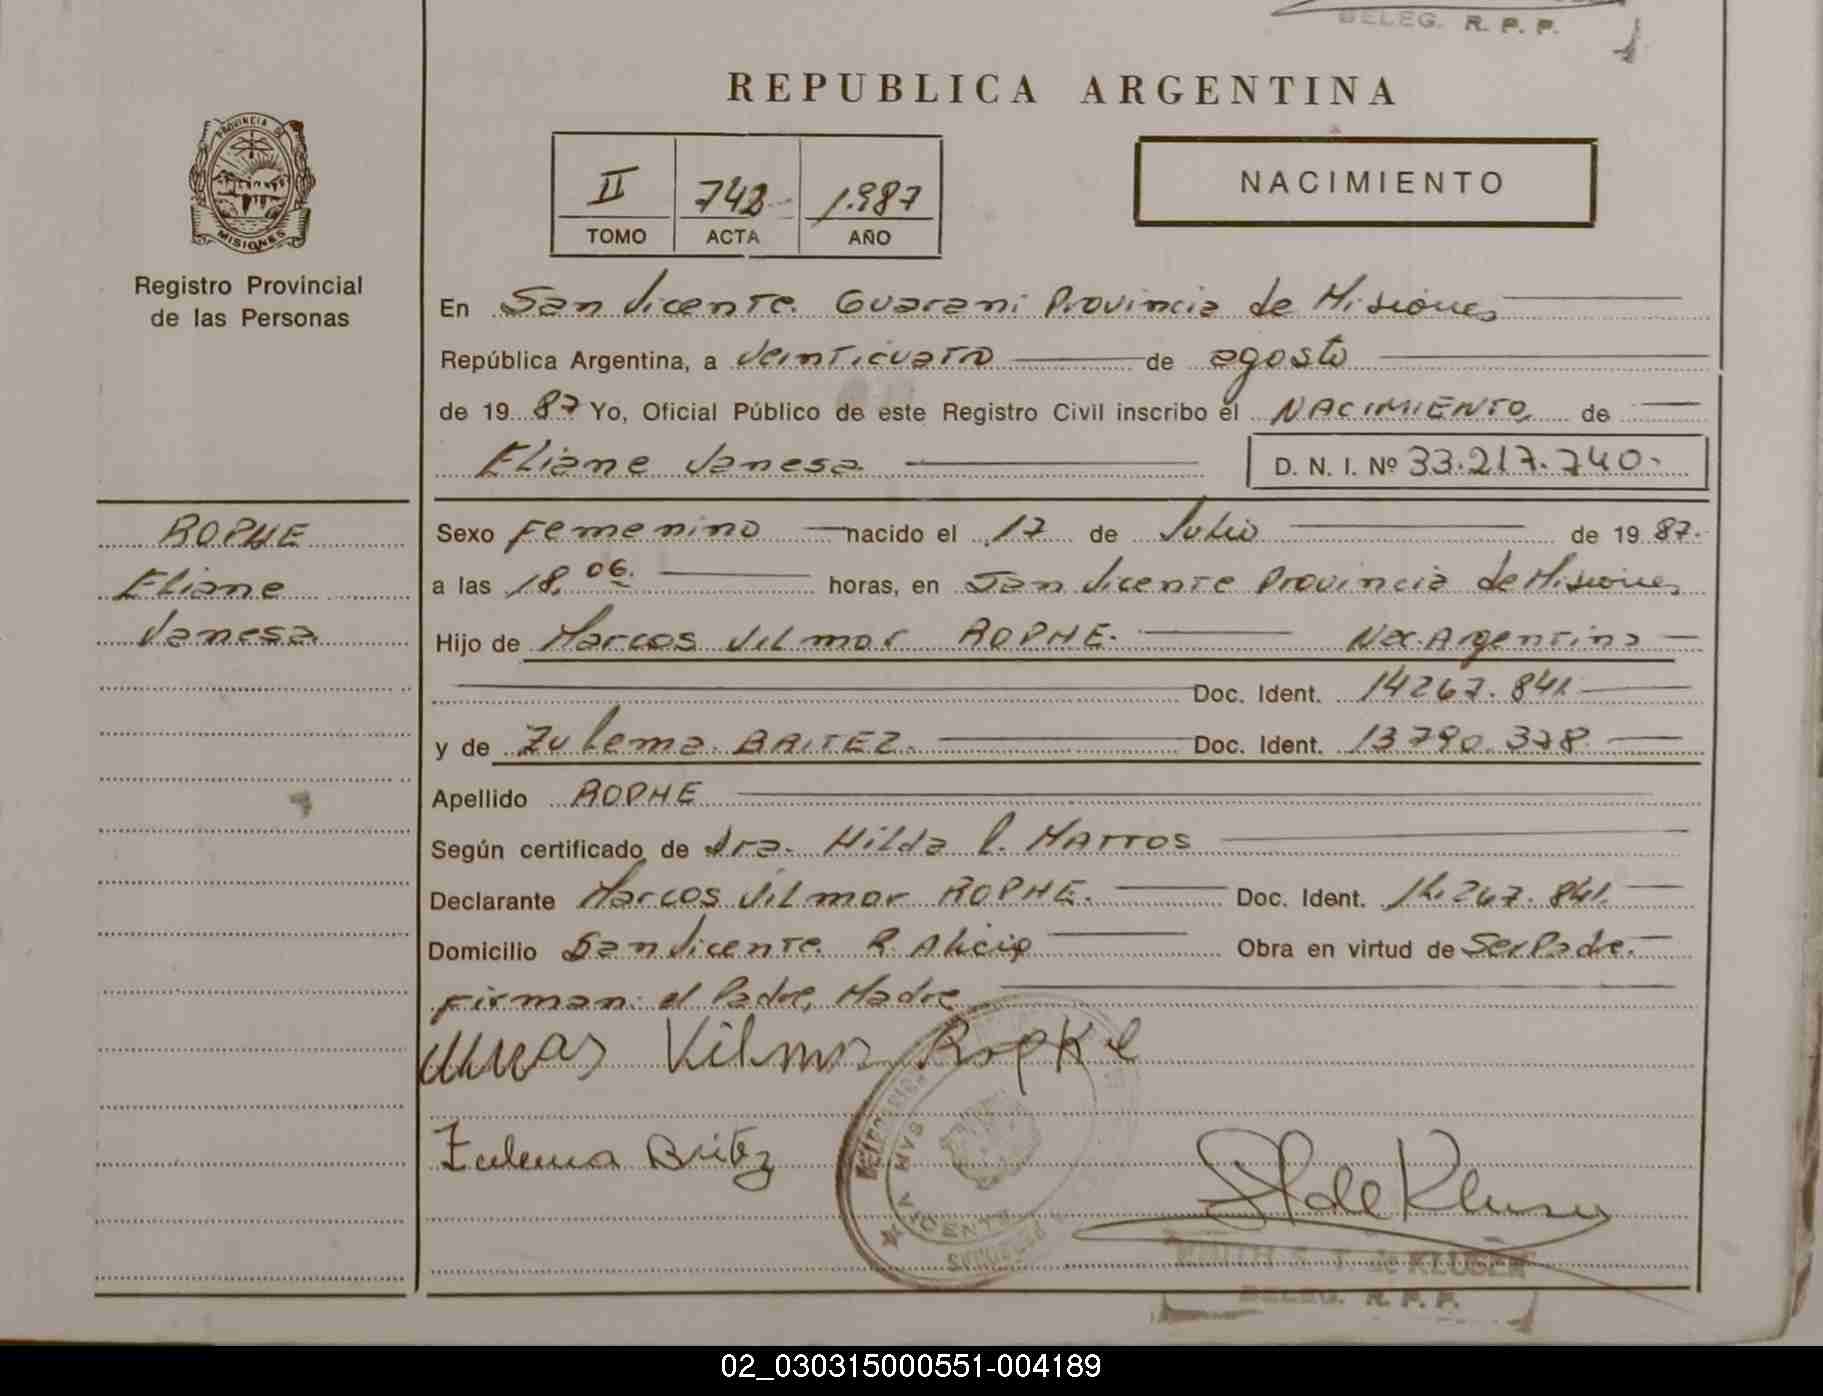 DELEG. R. P. P.
REPUBLICA ARGENTINA
PROVINCIA DE
MISIONES
Registro Provincial
de las Personas
II 742 1.987
TOMO ACTA AÑO
NACIMIENTO
En San Vicente. Guarani Provincia de Misiones
República Argentina, a Veinticuatro de agosto
de 1987 Yo, Oficial Público de este Registro Civil inscribo el NACIMIENTO de
Eliane Vanesa D. N. I. Nº 33.217.740.
ROPHE
Eliane
Vanesa
Sexo Femenino nacido el 17 de Julio de 1987.
a las 18,06. horas, en San Vicente Provincia de Misiones
Hijo de Marcos Vilmar ROPHE. Nac. Argentina
Doc. Ident. 14267.841.
y de Zulema BRITEZ. Doc. Ident. 13790.378.
Apellido ROPHE
Según certificado de Dra. Hilda l. MATTOS
Declarante Marcos Vilmar ROPHE. Doc. Ident. 14.267.841.
Domicilio San Vicente. R. Alicia Obra en virtud de Ser Padre.
Firman: el Padre, Madre
Vilmar Ropke
Zulema Britez
SAN VICENTE
MISIONES
EDITH S. T. de KLUSER
DELEG. R. P. P.
02_030315000551-004189